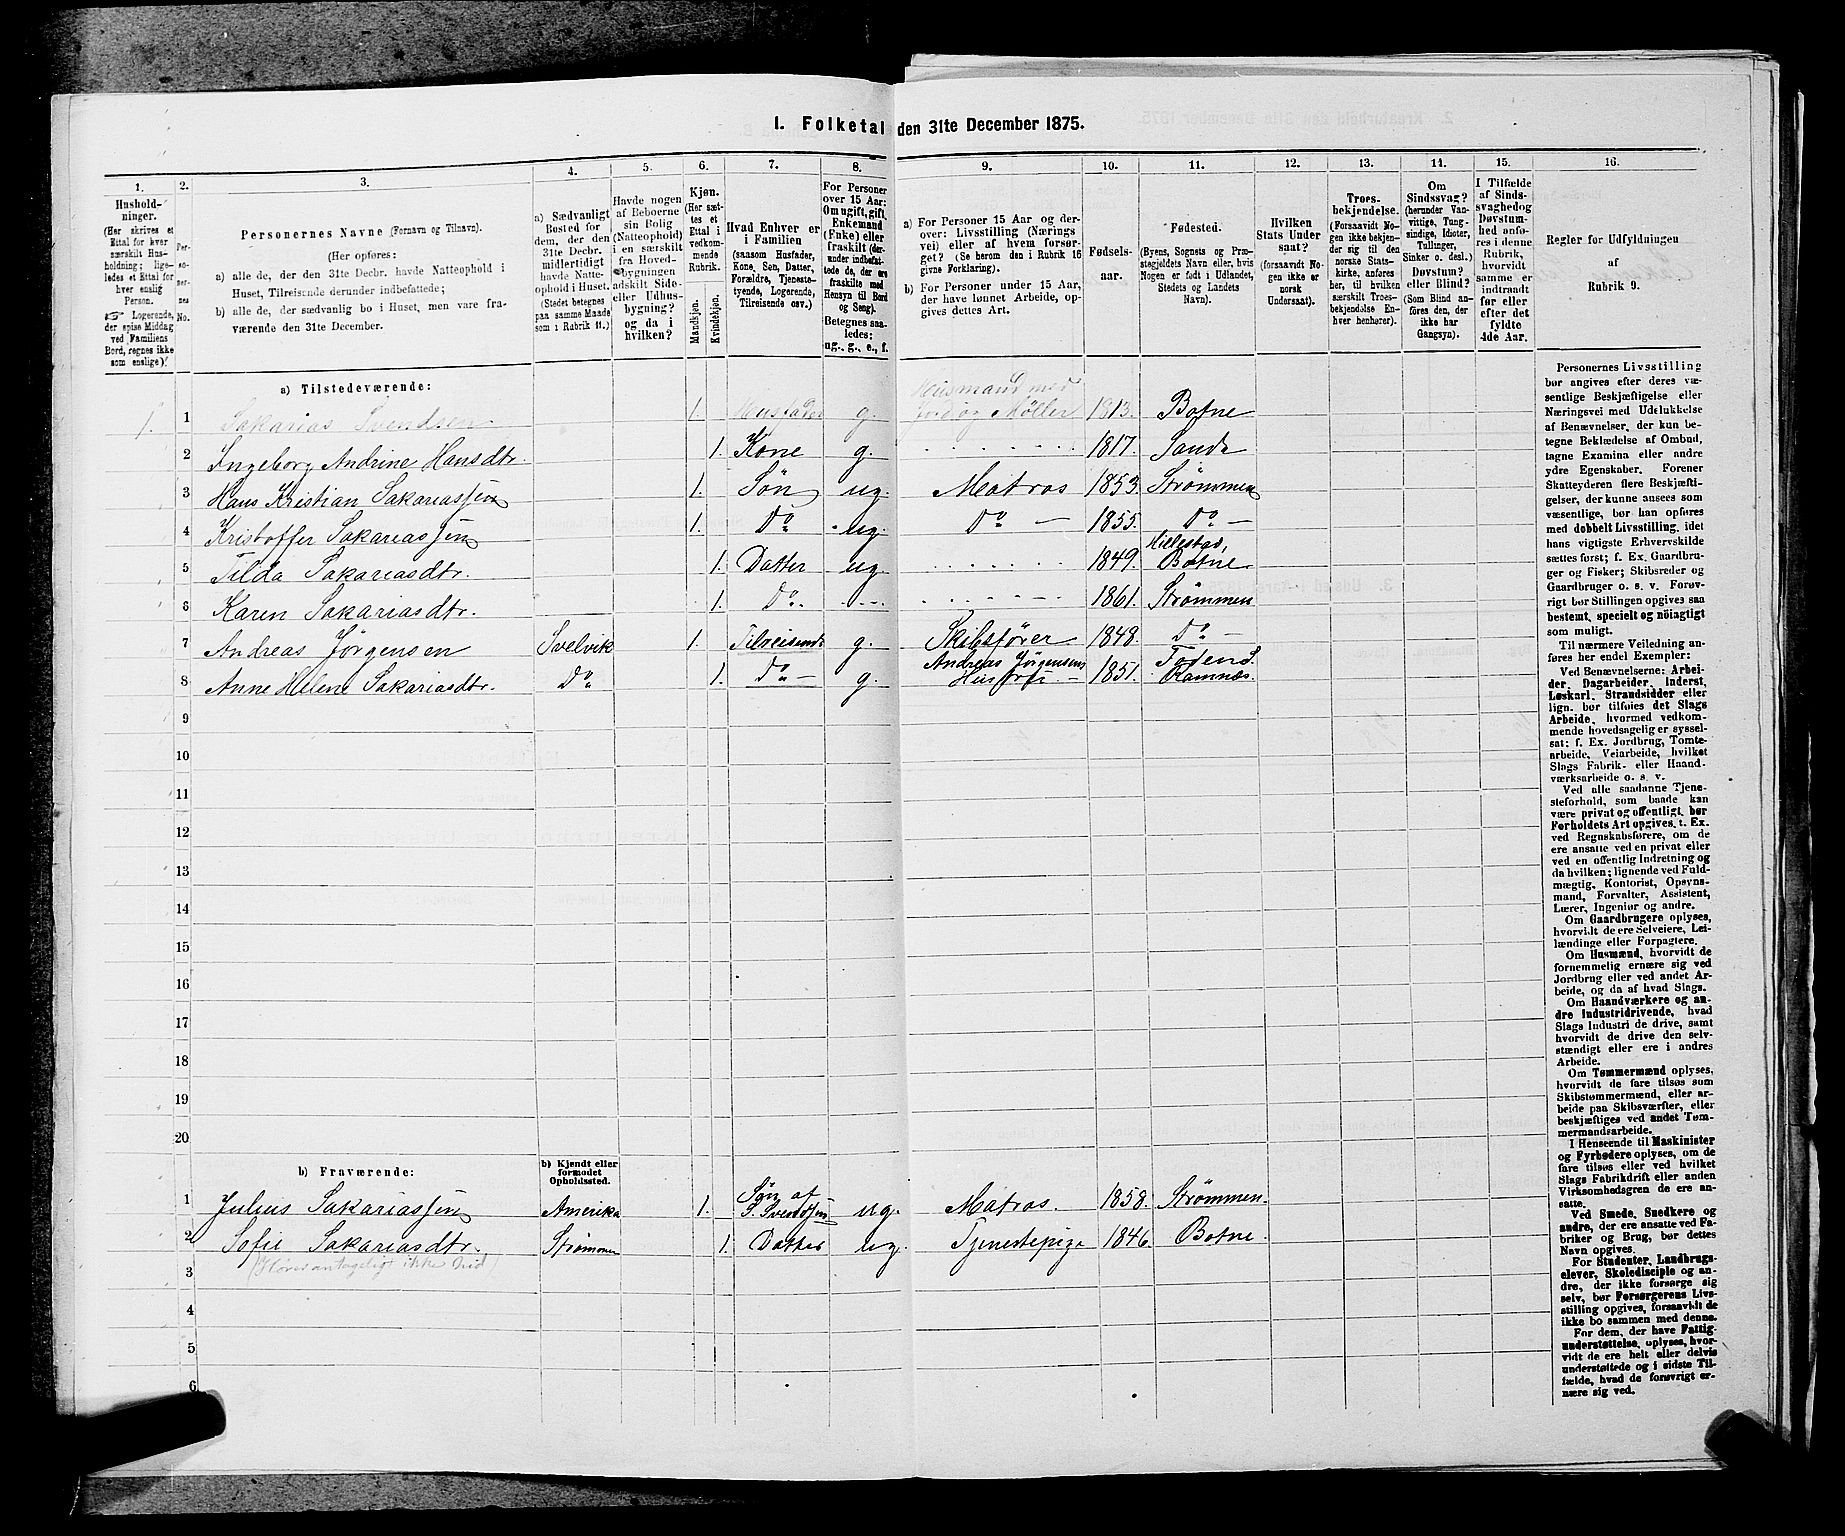 I. Folketal den 31te December 1875.
1. 2. 3. 4. 5. 6. 7. 8. 9. 10. 11. 12. 13. 14. 15. 16.
Hushold-
ninger.
(Her skrives et
Ettal for hver
særskilt Hus-
holdning; lige-
ledes et Ettal for
hver enslig
Person.
☞ Logerende,
der spise Middag
ved Familiens
Bord, regnes ikke
som enslige).
Per-
so-
ner-
nes
No.
Personernes Navne (Fornavn og Tilnavn).
(Her opføres:
a) alle de, der den 31te Decbr. havde Natteophold i
Huset, Tilreisende derunder indbefattede;
b) alle de, der sædvanlig bo i Huset, men vare fra-
værende den 31te December.
a) Sædvanligt
Bosted for
dem, der den
31te Decbr.
midlertidigt
havde Natte-
ophold i Huset.
(Stedet betegnes
paa samme Maade
som i Rubrik 11.)
Havde nogen
af Beboerne
sin Bolig
(Natteophold)
i en særskilt
fra Hoved-
bygningen
adskilt Side-
eller Udhus-
bygning?
og da i
hvilken?
Kjøn.
(Her sæt-
tes et
Ettal i
vedkom-
mende
Rubrik.
Mandkjøn.
Kvindekjøn.
Hvad Enhver er
i Familien
(saasom Husfader,
Kone, Søn, Datter,
Forældre, Tjeneste-
tyende, Logerende,
Tilreisende osv.)
For Personer
over 15 Aar:
Om ugift, gift,
Enkemand
(Enke) eller
fraskilt (der-
under indbefat-
tede de, der ere
fraskilte med
Hensyn til Bord
og Seng).
Betegnes saa-
ledes:
ug., g., e., f.
a) For Personer 15 Aar og der-
over: Livsstilling (Nærings
vei) eller af hvem forsør-
get? (Se herom den i Rubrik 16
givne Forklaring).
b) For Personer under 15 Aar,
der have lønnet Arbeide, op-
gives dettes Art.
Fødsels-
aar.
Fødested.
(Byens, Sognets og Præ-
stegjeldets Navn eller, hvis
Nogen er født i Udlandet,
Stedets og Landets
Navn).
Hvilken
Stats Under
saat?
(forsaavidt No-
gen ikke er
norsk
Undersaat).
Troes-
bekjendelse.
(Forsaavidt No-
gen ikke bekjen-
der sig til den
norske Stats-
kirke, anføres
her, til hvilken
særskilt Troes-
bekjendelse En-
hver henhører).
Om
Sindssvag?
(herunder Van-
vittige, Tung-
sindige, Idioter,
Tullinger,
Sinker o. desl.)
Døvstum?
eller Blind?
(Som Blind an-
føres den, der
ikke har
Gangsyn).
I Tilfælde
af Sinds-
svaghed og
Døvstum-
hed anfø-
res i denne
Rubrik,
hvorvidt
samme er
indtraadt
før eller
efter det
fyldte
4de Aar.
Regler for Udfyldningen
af
Rubrik 9.
a) Tilstedeværende:
1. 1 Sakarias Svendsen 1. Husfader g. Husmand med
Jord og Møller 1813. Botne
2 Ingeborg Andrine Hansdtr. 1. Kone g. 1817. Sande
3 Hans Kristian Sakariassen 1. Søn ug. Matros 1853. Strømmen
4 Kristoffer Sakariassen 1. Do ug. Do 1855. Do
5 Tilda Sakariasdtr. 1. Datter ug. 1849. Hillestad,
Botne
6 Karen Sakariasdtr. 1. Do 1861. Strømmen
7 Andreas Jørgensen Svelvik 1. Tilreisende g. Skibsfører 1848. Do
8 Anne Helene Sakariasdtr. Do 1. Do g. Andreas Jørgensens
Hustru 1851. Ramnæs.
9
10
11
12
13
14
15
16
17
18
19
20
b) Fraværende:
b) Kjendt eller
formodet
Opholdssted.
1 Julius Sakariassen Amerika 1. Søn af
S. Svendsen ug. Matros. 1858. Strømmen.
2 Sofie Sakariasdtr. Strømmen 1. Datter ug. Tjenestepige 1846. Botne.
3
4
5
6
Personernes Livsstilling
bør angives efter deres væ-
sentlige Beskjæftigelse eller
Næringsvei med Udelukkelse
af Benævnelser, der kun be-
tegne Beklædelse af Ombud,
tagne Examina eller andre
ydre Egenskaber. Forener
Skatteyderen flere Beskjæfti-
gelser, der kunne ansees som
væsentlige, bør han opføres
med dobbelt Livsstilling, idet
hans vigtigste Erhvervskilde
sættes først; f. Ex. Gaardbru-
ger og Fisker; Skibsreder og
Gaardbruger o. s. v. Forøv-
rigt bør Stillingen opgives saa
bestemt, specielt og nöiagtigt
som muligt.
Til nærmere Veiledning an-
føres her endel Exempler:
Ved Benævnelserne: Arbei-
der, Dagarbeider, Inderst,
Løskarl, Strandsidder eller
lign. bør tilføies det Slags
Arbeide, hvormed vedkom-
mende hovedsagelig er syssel-
sat: f. Ex. Jordbrug, Tomte-
arbeide, Veiarbeide, hvilket
Slags Fabrik- eller Haand-
værksarbeide o. s. v.
Ved alle saadanne Tjene-
steforhold, som baade kan
være privat og offentligt, bør
Forholdets Art opgives, t. Ex.
ved Regnskabsførere, om de
ere ansatte ved en privat eller
ved en offentlig Indretning og
da hvilken; lignende ved Fuld-
mægtig, Kontorist, Opsyns-
mand, Forvalter, Assistent,
Lærer, Ingeniør og andre.
Om Gaardbrugere oplyses,
hvorvidt de ere Selveiere, Lei-
lændinge eller Forpagtere.
Om Husmænd, hvorvidt de
fornemmelig ernære sig ved
Jordbrug eller ved andet Ar-
beide, og da af hvad Slags.
Om Haandværkere og an-
dre Industridrivende, hvad
Slags Industri de drive, samt
hvorvidt de drive den selv-
stændigt eller ere i andres
Arbeide.
Om Tømmermænd oplyses,
hvorvidt de fare tilsøs som
Skibstømmermænd, eller ar-
beide paa Skibsværfter, eller
beskjæftiges ved andet Tøm-
mermandsarbeide.
I Henseende til Maskinister
og Fyrbødere oplyses, om de
fare tilsøs eller ved hvilket
Slags Fabrikdrift eller anden
Virksomhedsgren de ere an-
satte.
Ved Smede, Snedkere og
andre, der ere ansatte ved Fa-
briker og Brug, bør dettes
Navn opgives.
For Studenter, Landbrugs-
elever, Skoledisciple og an-
dre, der ikke forsørge sig
selv, bør Forsørgerens Livs-
stilling opgives, forsaavidt de
ikke bo sammen med denne.
For dem, der have Fattig-
understøttelse, oplyses, hvor-
vidt de ere helt eller delvis
understøttede og i sidste Til-
fælde, hvad de forøvrigt er-
nære sig ved.